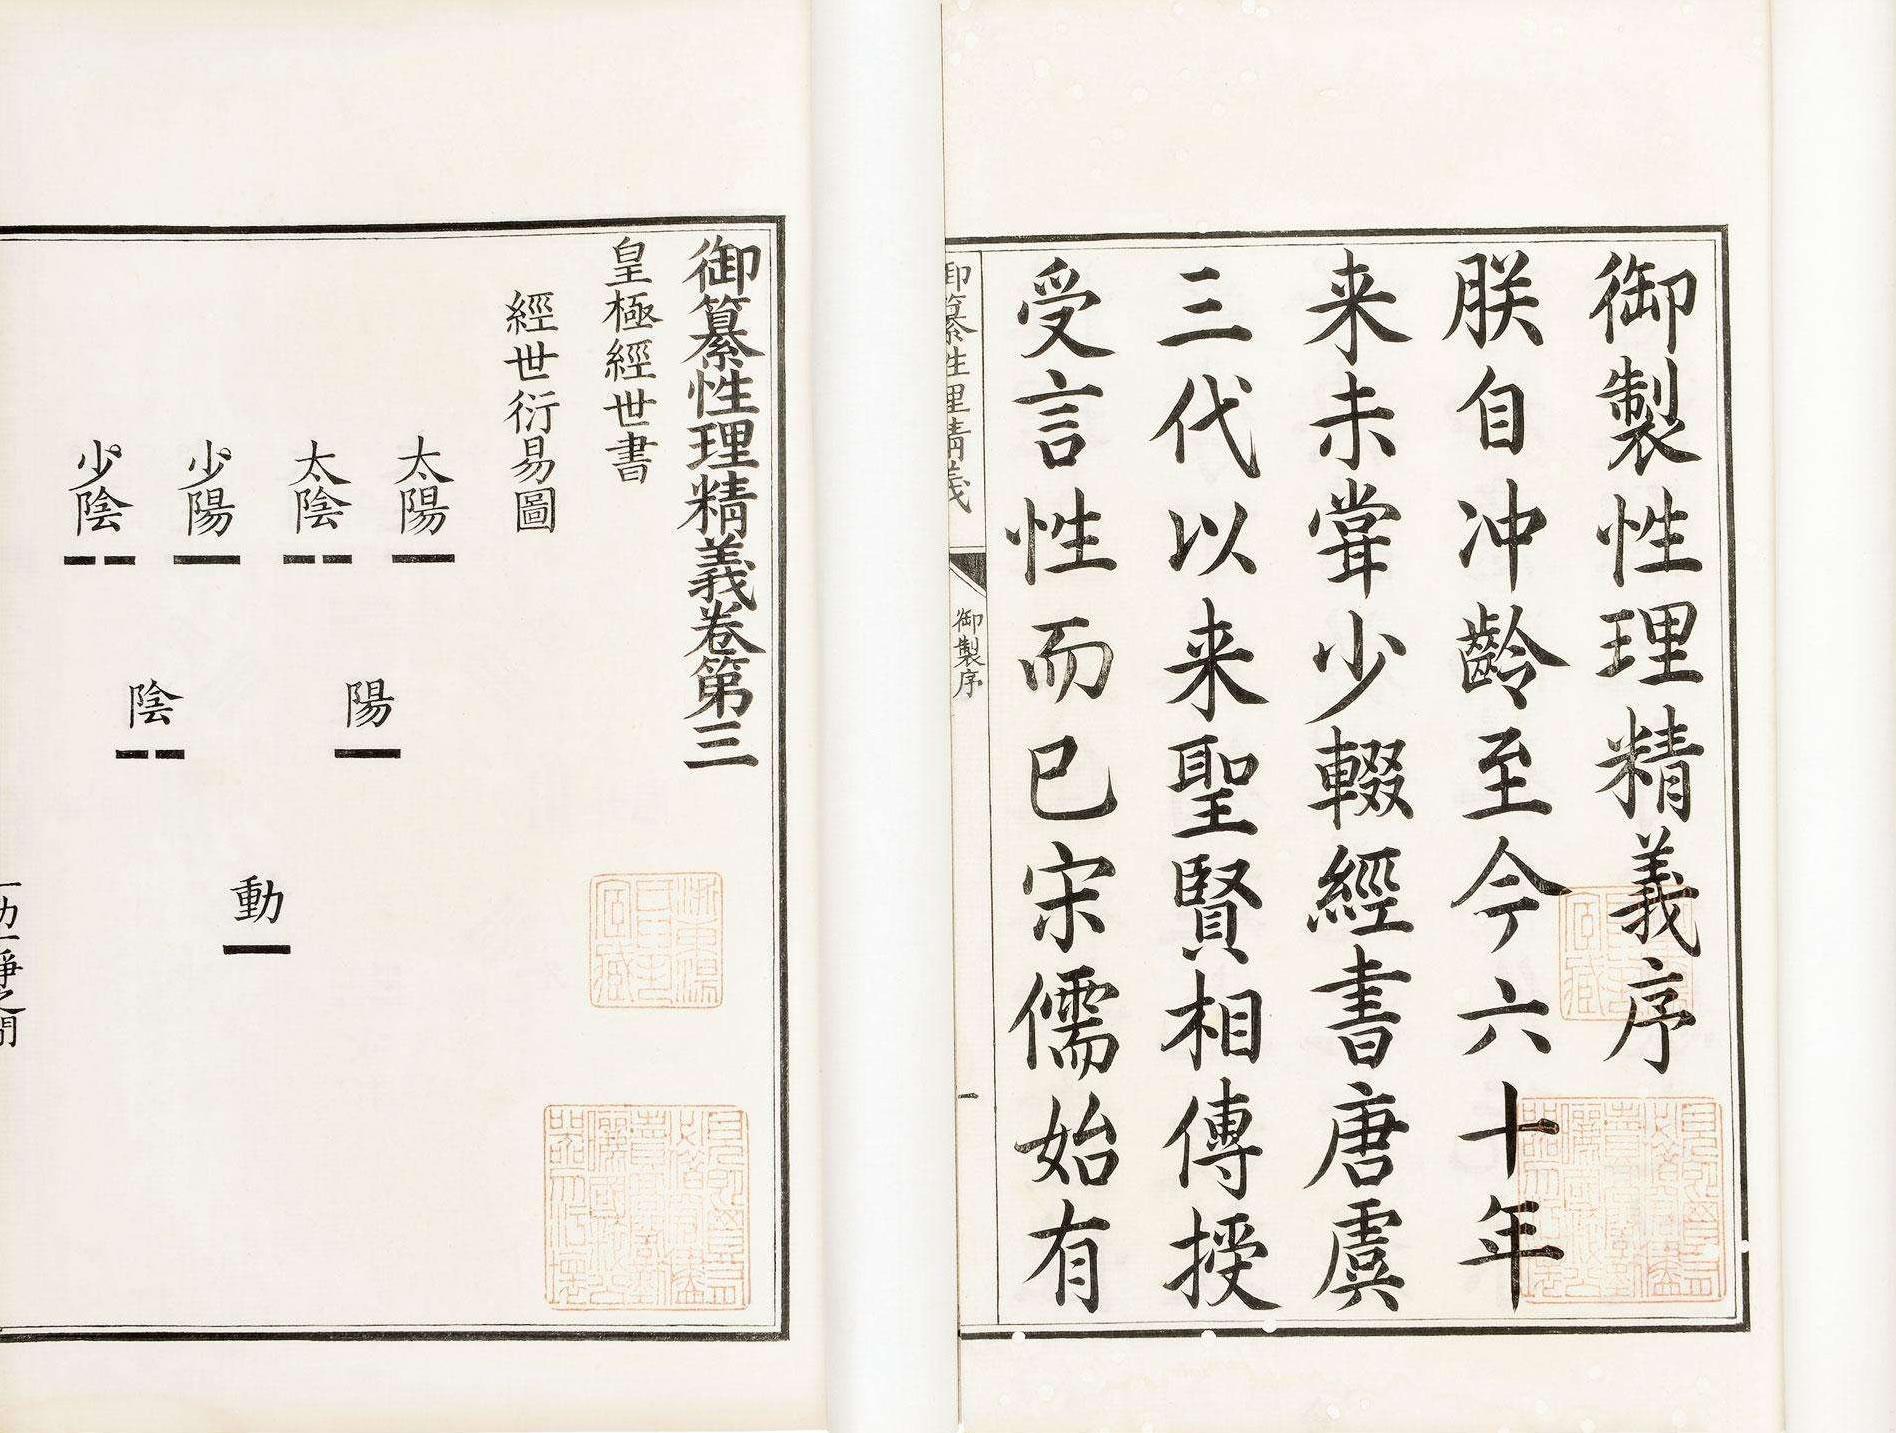 御製性理精義序
朕自冲齡至今六十年
来未甞少輟經書唐虞
三代以来聖賢相傳授
受言性而已宋儒始有
御纂性理精義
御製序
一
御纂性理精義卷第三
皇極經世書
經世衍易圖
太陽
太陰
少陽
少陰
陽
陰
動
一動一靜之間